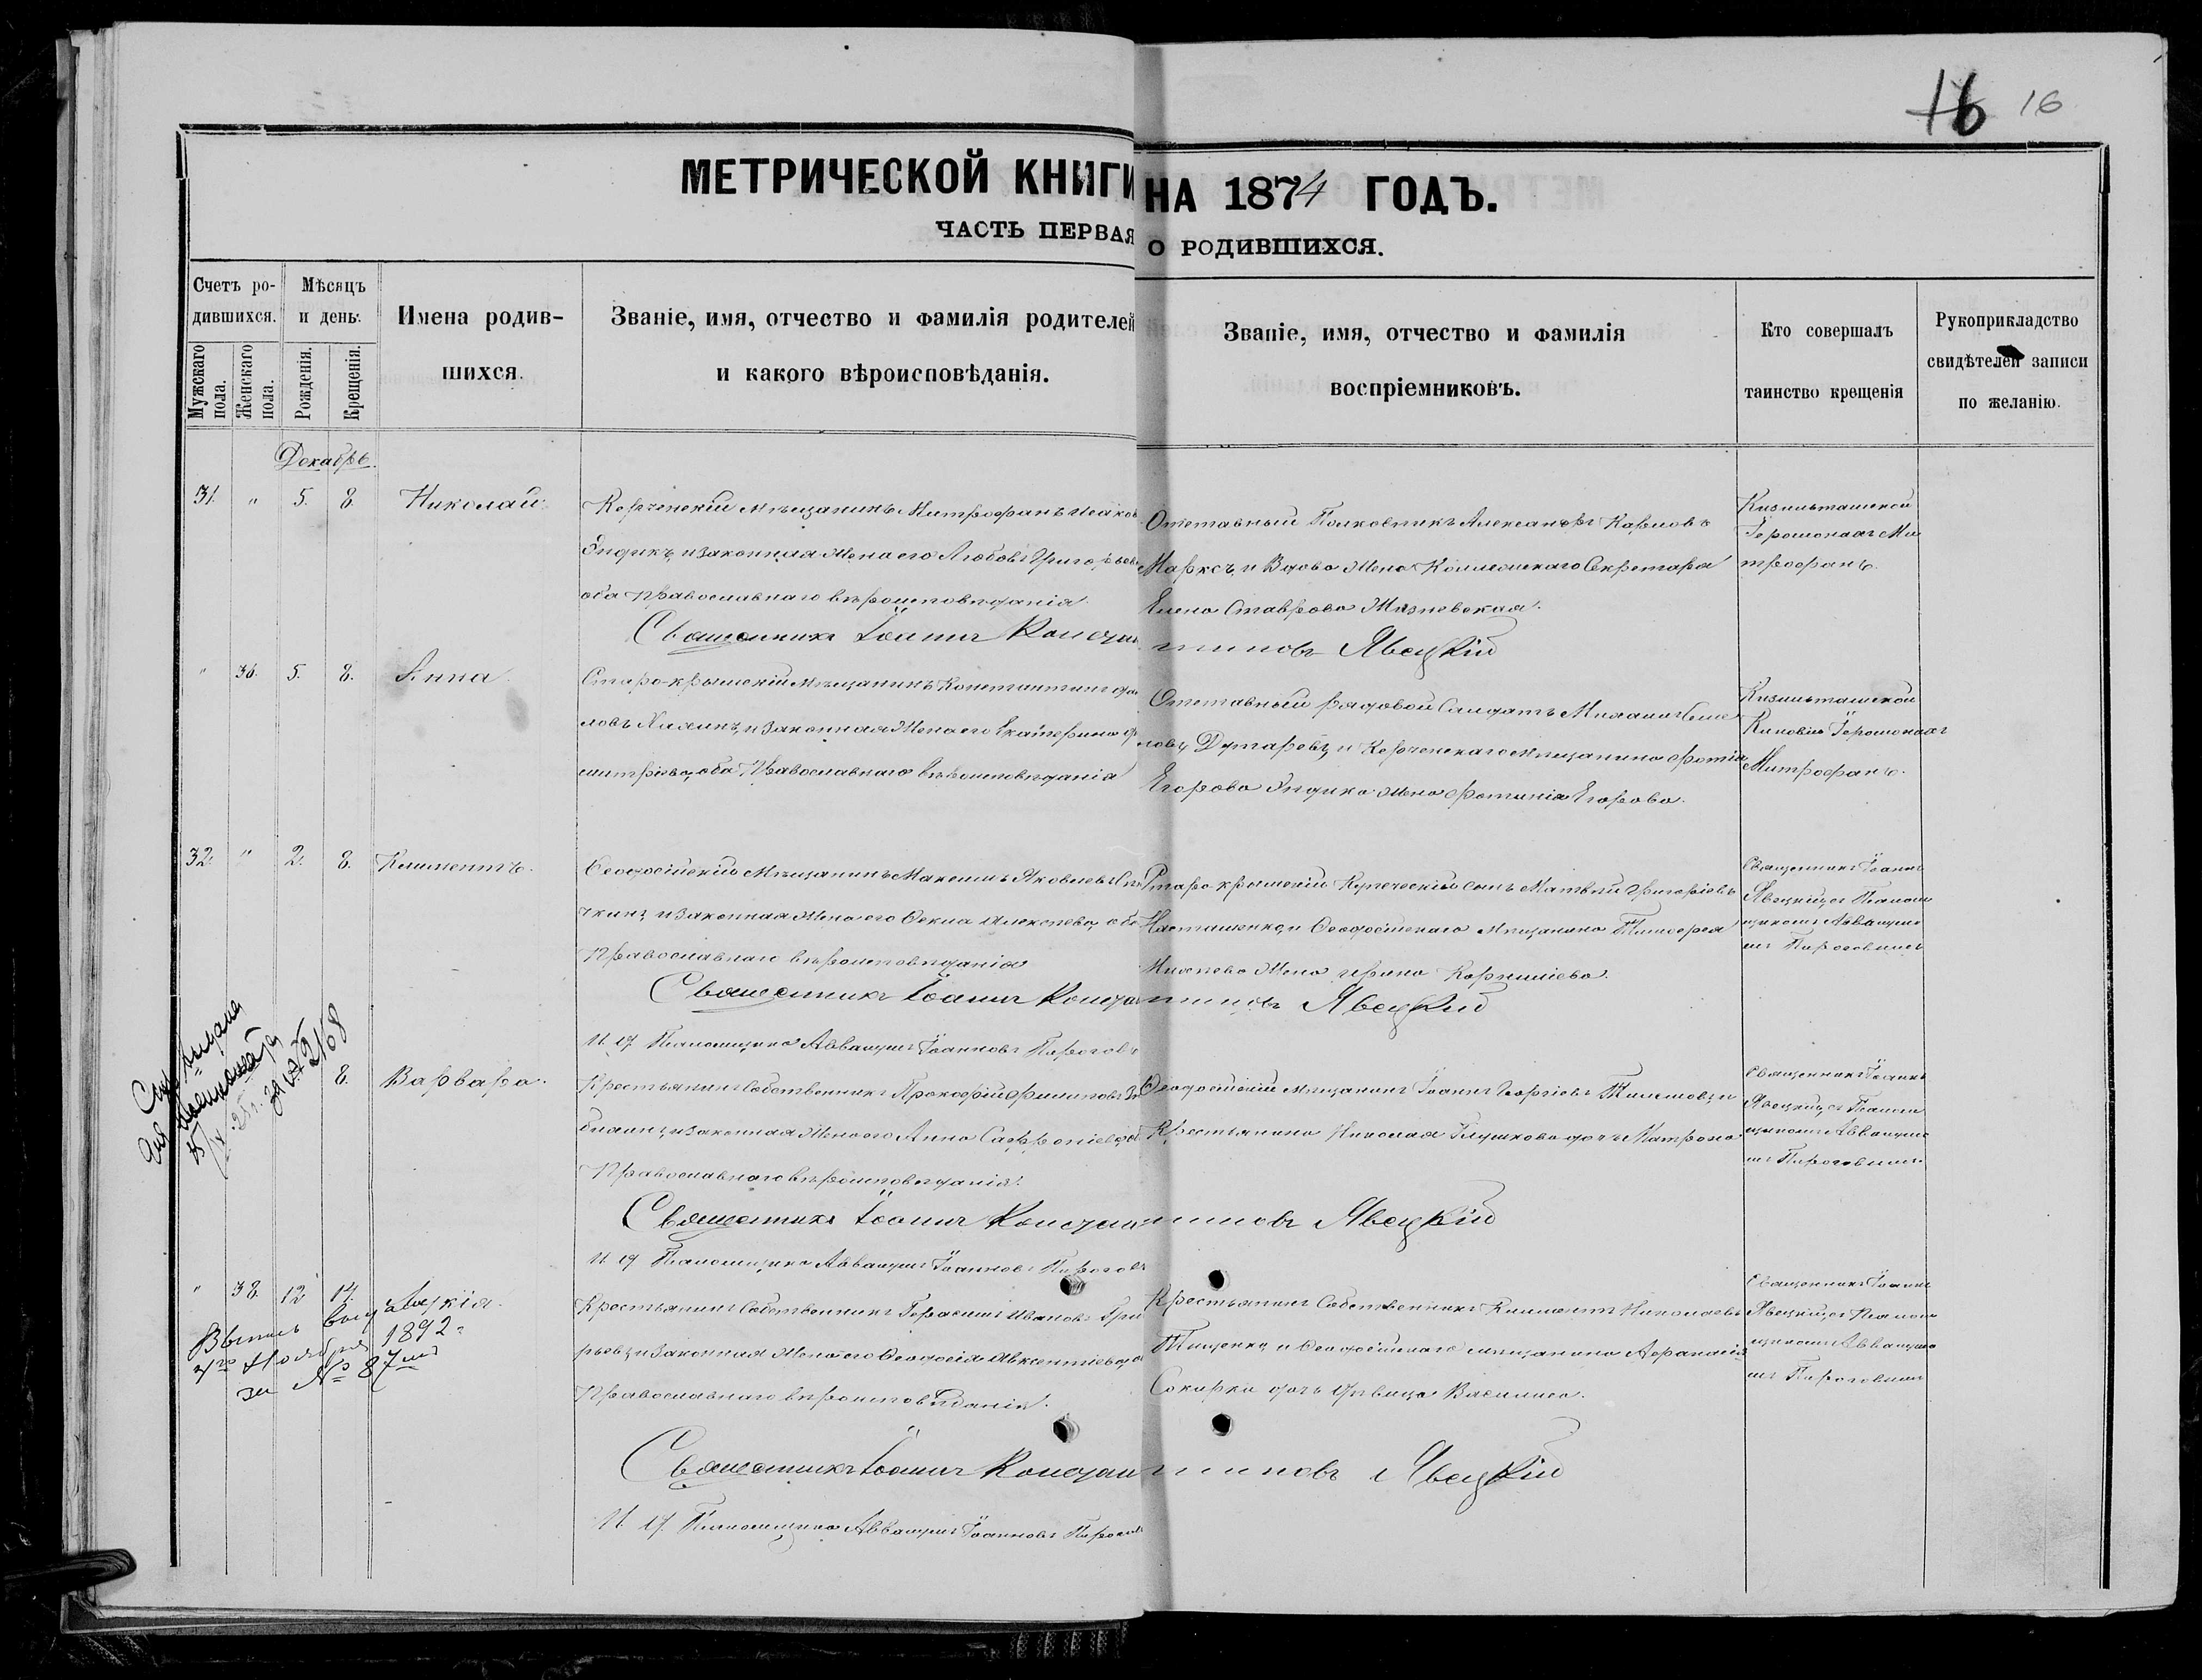 16 16
МЕТРИЧЕСКОЙ КНИГИ НА 1874 ГОДЪ.
ЧАСТЬ ПЕРВАЯ О РОДИВШИХСЯ.
Счетъ родившихся.
Мужскаго пола.
Женскаго пола.
Мѣсяцъ и день.
Рожденія.
Крещенія.
Имена родив-
шихся.
Званіе, имя, отчество и фамилія родителей
и какого вѣроисповѣданія.
Званіе, имя, отчество и фамилія
воспріемниковъ.
Кто совершалъ
таинство крещенія
Рукоприкладство
свидѣтелей записи
по желанію.
Декабрь
31. " 5. 8. Николай
Керченскій мѣщанинъ Митрофанъ Исаков
Эндикъ, и законная жена его Любовь Григорьева
оба православнаго вѣроисповѣданія.
Отставный Полковникъ Александръ Карловъ
Марксъ, и Вдова жена Коллежскаго Секретаря
Елена Ставрова
Кизильташской
Іеромонахъ Ми
трофанъ.
Священникъ Іоаннъ Константиновъ Явецкій
" 36. 5. 8. Анна
Старо-крымскій мѣщанинъ Константинъ
ловъ и законная жена его Екатерина
митріева, оба Православнаго вѣроисповѣданія
Отставный рядовой Солдатъ
и Керченскаго мѣщанина
Егорова Эндика жена Фотинія Егорова.
Кизильташской
Киновіи Іеромонахъ
Митрофанъ.
32. " 2. 8. Климентъ.
Ѳеодосійскій Мѣщанинъ Максимъ Яковлевъ
и законная жена его Ѳекла Алексѣева, оба
Православнаго вѣроисповѣданія
Старо-крымскій Купеческій сынъ Матвѣй Григорьевъ
и Ѳеодосійскаго Мѣщанина Тимоѳея
жена Ирина Корнилиева.
Священникъ Іоаннъ
Явецкій съ Палом
щикомъ Аввакумо
мъ Пироговымъ
Священникъ Іоаннъ Константиновъ Явецкій
И. д. Паломщика Аввакумъ Іоанновъ Пироговъ
8. Варвара.
Крестьянинъ Собственникъ Прокофій Филиповъ
и законная жена его Анна
Православнаго вѣроисповѣданія.
Ѳеодосійскій мѣщанинъ Іоаннъ Георгіевъ
Крестьянина Николая Глушкова дочь Матрона
Священникъ Іоаннъ
Явецкій съ Палом
щикомъ Аввакумо
мъ Пироговымъ.
за № 2168
Священникъ Іоаннъ Константиновъ Явецкій
И. д. Паломщика Аввакумъ Іоанновъ Пироговъ
" 38. 12 14.
Крестьянинъ Собственникъ Герасимъ Ивановъ Гри
рьевъ, и законная жена его Ѳеодосія Авксентіева
Православнаго вѣроисповѣданія.
Крестьянинъ Собственникъ Климентъ Николаевъ
Тищенко, и Ѳеодосійскаго мѣщанина Аѳанасія
Сокирки дочь дѣвица Василиса.
Священникъ Іоаннъ
Явецкій съ Палом
щикомъ Аввакумо
мъ Пироговымъ
Выпись выд
Ноября 1892
за № 87
Священникъ Іоаннъ Константиновъ Явецкій
И. д. Паломщика Аввакумъ Іоанновъ Пирогов